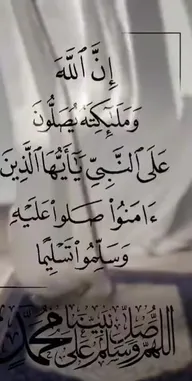 إِنَّ ٱللَّهَ
وَمَلَٰٓئِكَتَهُۥ يُصَلُّونَ
عَلَى ٱلنَّبِىِّ يَٰٓأَيُّهَا ٱلَّذِينَ
ءَامَنُوا۟ صَلُّوا۟ عَلَيْهِ
وَسَلِّمُوا۟ تَسْلِيمًا
اللهم صل وسلم على نبينا محمد